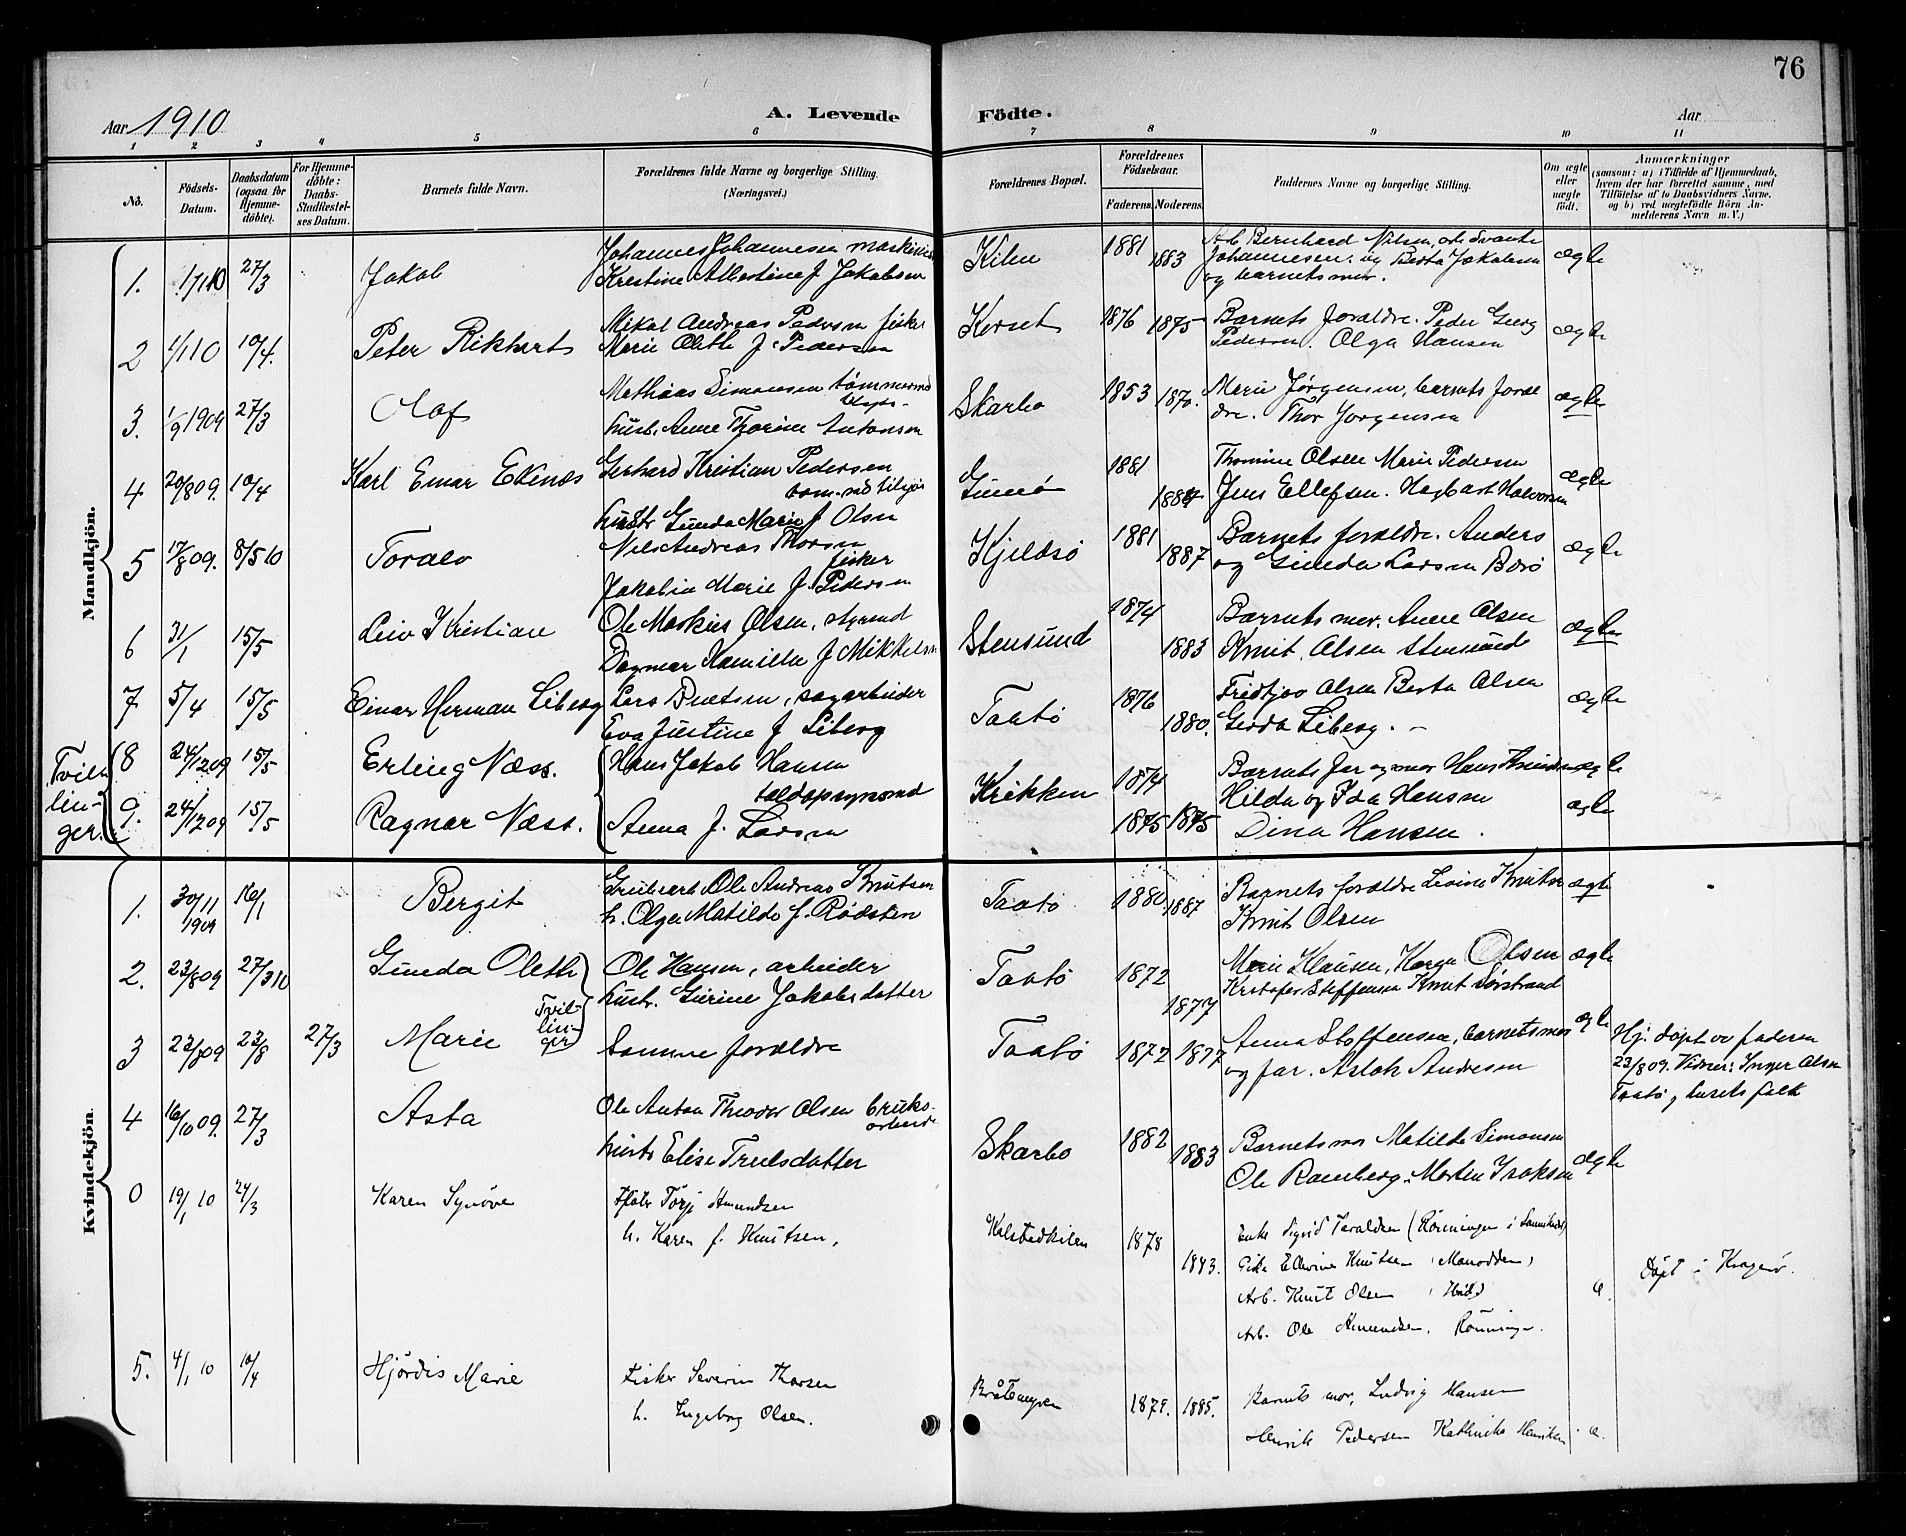 76
Aar 1910
A. Levende Födte.
Aar
1 2 3 4 5 6 7 8 9 10 11
No.
Födsels-Datum.
Daabsdatum (ogsaa for Hjemmedöbte).
For Hjemmedöbte: Daabs-Stadfæstelses Datum.
Barnets fulde Navn.
Forældrenes fulde Navne og borgerlige Stilling. (Næringsvei.)
Forældrenes Bopæl.
Forældrenes Födselsaar.
Faderens. Moderens.
Faddernes Navne og borgerlige Stilling.
Om ægte eller uægte født.
Anmærkninger
(saasom: a) i Tilfælde af Hjemmedaab, hvem der har forrettet samme, med Tilførelse af to Daabsvidners Navne, og b) ved uægtefødte Börn Anmelderens Navn m. V.)
Mandkjön.
1. 1/1 10 27/3 Jakob Johannes Johannesen maskinist Kilen 1881 1883 Arb Bernhard Nilsen, arb Svante ægte
Kristine Albertine f Jakobsen Johannesen og Berta Jakobsen
og barnets mor.
2 1/1 10 10/4. Peter Rikhart Mikal Andreas Pedersen fisker Korset 1876 1875 Barnets forældre. Peder Georg ægte
Marie Oleth f. Pedersen Pedersen. Olga Hansen
3. 1/9 1909 27/3 Olof Mathias Simonsen tømmermd Skarbo 1853 1870. Marie Jørgensen, barnets foræl ægte
hust. Anne Thorine Antonsen dre. Thor Jørgensen
4 20/8 09. 10/4 Karl Einar Ekenæs Gerhard Kristian Pedersen Gumø 1881 1884 Thomine Olsen Marie Pedersen ægte
hustr Gunda Marie f Olsen Jens Ellefsen. Hagbart Halvorsen
5 17/8 09. 8/5 10 Toralv Nils Andreas Thorsen fisker Kjeldsø 1881 1887 Barnets forældre. Anders ægte
Jakobin Marie f. Pedersen og Gunda Larsen Borø
6 31/1 15/5 Leiv Kristian Ole Markus Olsen, styrmd Stensund 1874 1883 Barnets mor. Anne Olsen ægte
Dagmar Kamilla f Mikkelsen Knut Olsen Stensund
7 5/4 15/5 Einar Herman Liberg Lars Knutsen, sagarbeider Taatø 1876 1880. Fridtjov Olsen Berta Olsen ægte
Eva Justine f Liberg Gerda Liberg. –
Tvillinger.
8 24/12 09 15/5 Erling Næss. Hans Jakob Hansen Krikken 1874 Barnets far og mor Hans Knudsen ægte
toldopsynsmd Hilda og Ida Hansen
9. 24/12 09 15/5 Ragnar Næss. Anna f. Larsen 1875 1875 Dina Hansen. ægte
Kvindekjön.
1. 30/11 1909 16/1 Bergit Grubearb Ole Andreas Knutsen Taatø 1880 1887 Barnets forældre Lovise Knutsen ægte
h. Olga Matilde f. Rødsten Knut Olsen
2. 23/8 09 27/3 10 Gunda Oleth Ole Hansen, arbeider Taatø 1872 1877 Marie Klausen, Karen Olsen ægte
Tvillinger hust. Gurine Jakobsdatter Kristofer Steffensen Knut Sørstrand
3 23/8 09 23/8 27/3 Marie Samme forældre Taatø 1872 1877 Anna Stoffensen, barnets mor ægte Hj. døpt av faderen
og far. Aslak Andresen 23/8 09. Vidner: Inger Olsen
Taatø og husets folk
4 16/10 09. 27/3 Asta Ole Anton Theodor Olsen bruks-arbeid Skarbo 1882 1883 Barnets mor Matilde Simonsen ægte
hustr Elise Truelsdatter Ole Ramberg. Morten Isaksen
0 19/1 10 24/3 Karen Synöve Terje Amundsen Kalstadkilen 1878 1883. Enke Sigrid Taraldsen (Rönningen i Sannikedal)
h. Karen f. Knutsen, Pike Ellevine Knutsen
Arb. Knut Olsen æ. Döpt i Kragerö.
Arb. Ole Amundsen, Rönningen.
5. 4/1 10 10/4 Hjördis Marie Fisker Severin Thorsen Bråtemyren 1879. 1885. Barnets mor, Ludvig Hansen
h. Ingeborg Olsen. Henrik Pedersen Kathinka Henriksen æ.